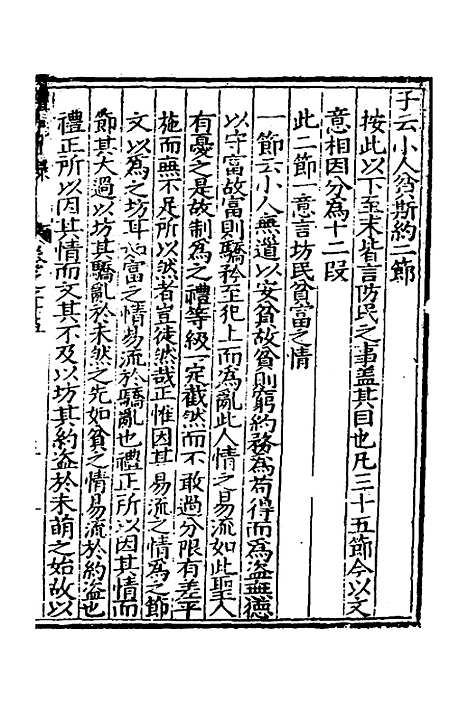 子云小人貧斯約二節
按此以下至末皆言防民之事盖其目也凡三十五節今以文
意相因分為十二段
此二節一意言坊民貧富之情
一節云小人無道以安貧故貧則窮約務為苟得而為盜無德
以守富故富則驕矜至犯上而為亂此人情之易流如此聖人
有憂之是故制為之禮等級一定截然而不敢過分限有差平
施而無不足所以然者豈徒然哉正惟因其易流之情為之節
文以為之坊耳如富之情易流於驕亂也禮正所以因其情而
節其大過以坊其驕亂於未然之先如貧之情易流於約盜也
禮正所以因其情而文其不及以坊其約盜於未萌之始故以